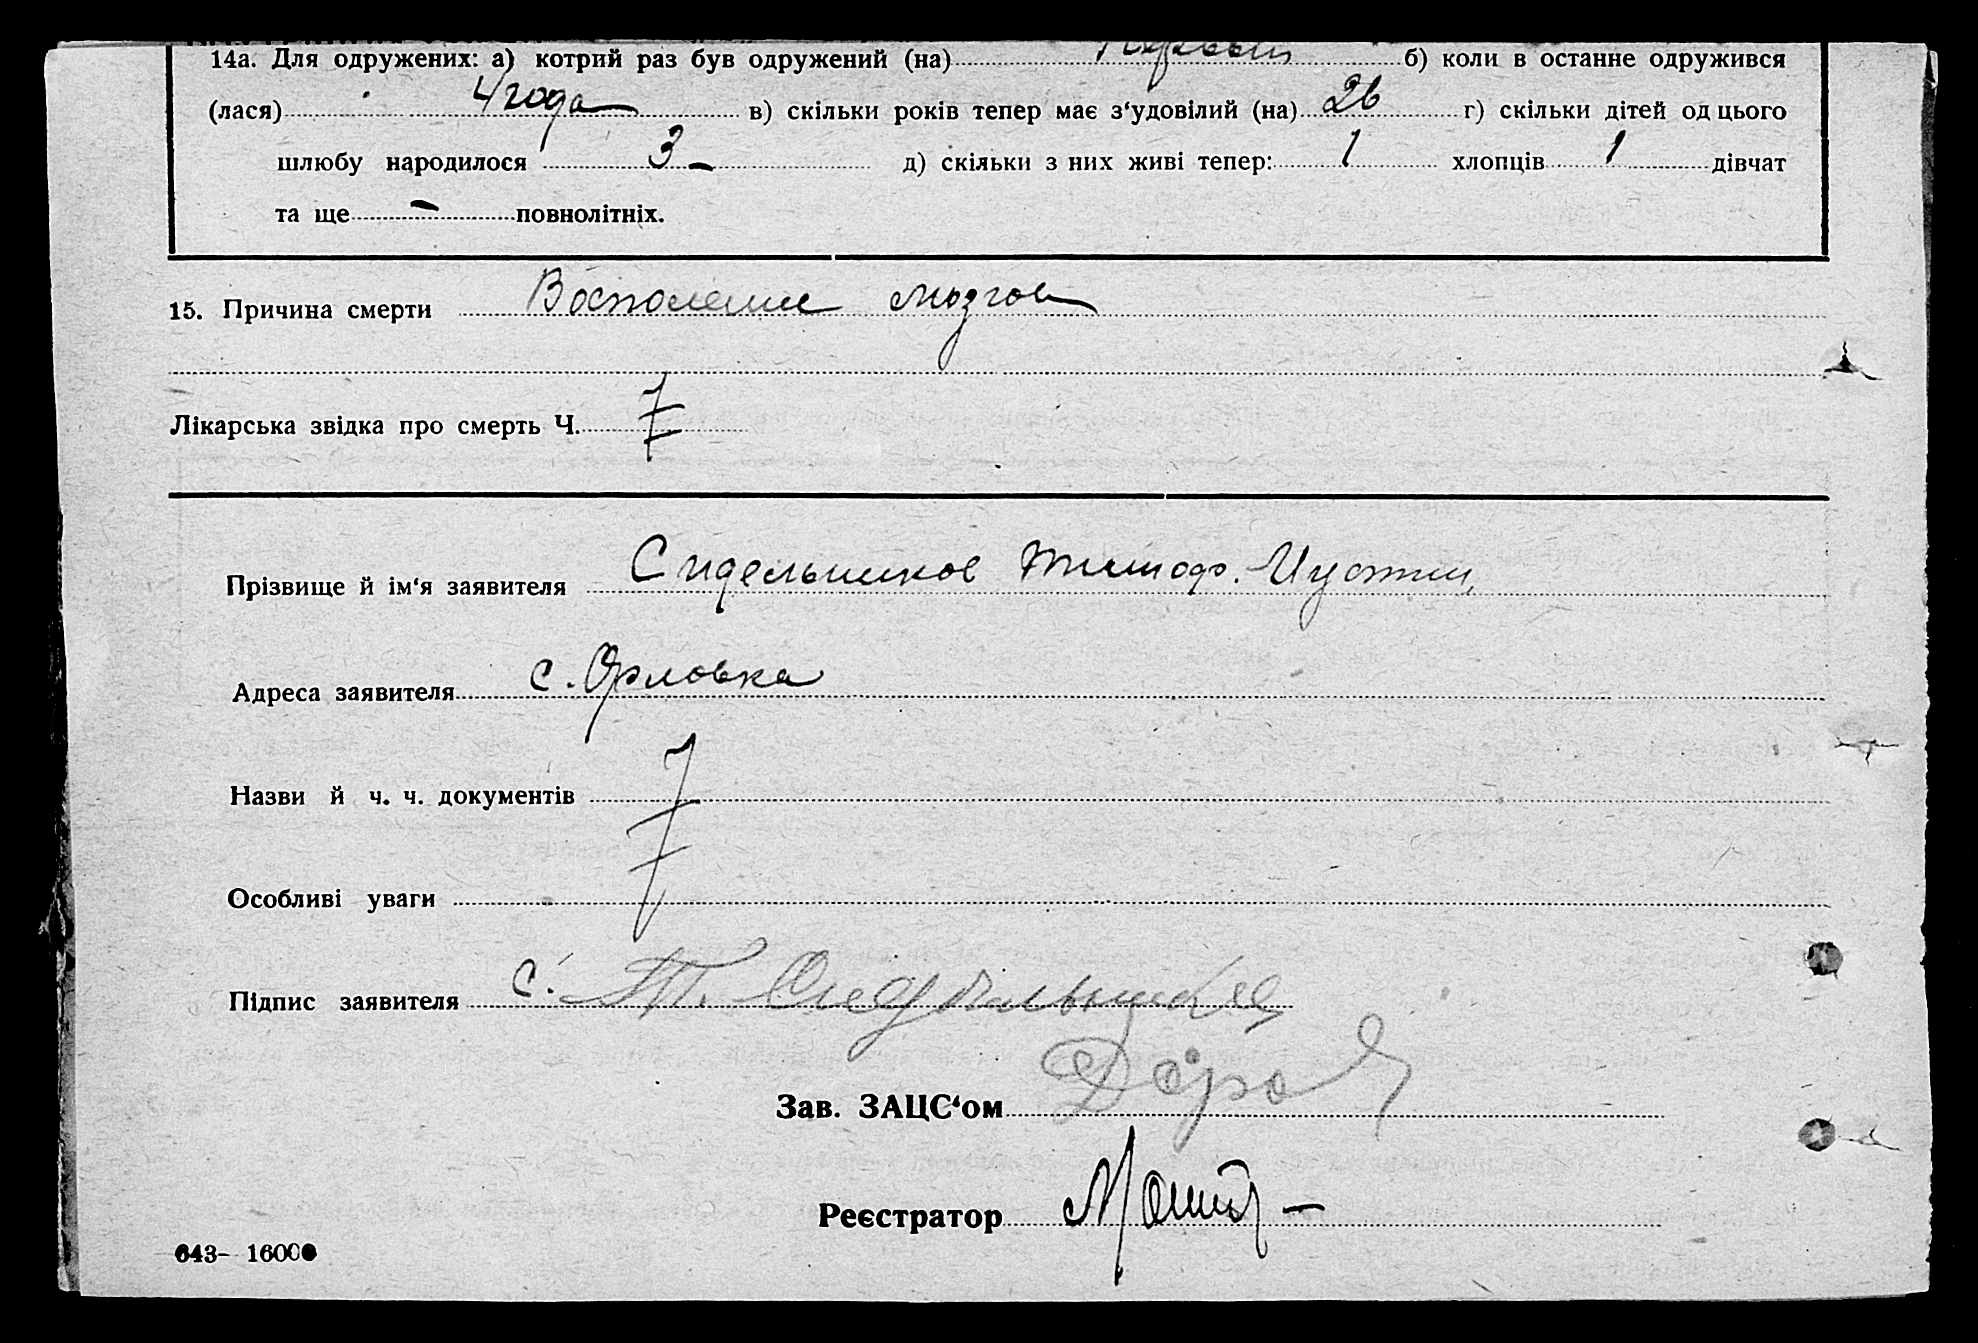 14а. Для одружених: а) котрий раз був одружений (на) Первый б) коли в останне одружився
(лася) 4 года в) скільки років тепер має з‘удовілий (на) 26 г) скільки дітей од цього
шлюбу народилося 3 – д) скільки з них живі тепер: 1 хлопців 1 дівчат
та ще – повнолітніх.
15. Причина смерти Восполение мозгов
Лікарська звідка про смерть Ч.
Прізвище й ім‘я заявителя Сидельников Тимоф. Иустин.
Адреса заявителя с. Орловка
Назви й ч. ч. документів
Особливі уваги
Підпис заявителя с. Т.
Зав. ЗАЦС‘ом
Реєстратор
643- 16000